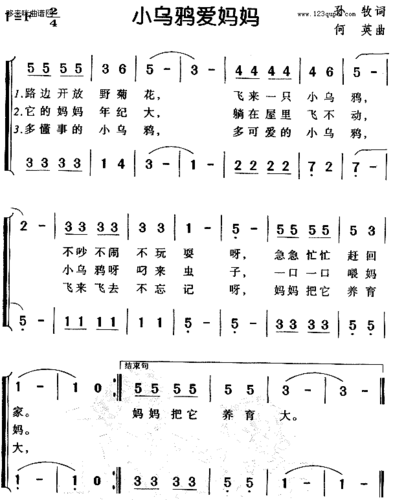 小乌鸦爱妈妈
1=F 2/4
www.123
孙 牧词
何 英曲
5 5 5 5 | 3 6 | 5 - | 4 4 4 4 | 3 2 | 5 -
1.路边开放 野菊花, 飞来一只 小乌鸦,
2.它的妈妈 年纪大, 躺在屋里 飞不动,
3.多懂事的 小乌鸦, 多可爱的 小乌鸦,
3 3 3 3 | 1 4 | 3 - | 2 2 2 2 | 7 2 | 7 -
2 - | 3 3 3 3 | 3 2 | 1 - | 5 - | 5 5 5 5 | 5 5
不吵不闹 不玩耍 呀, 急急忙忙 赶回
小乌鸦呀 叼来虫 子, 一口一口 喂妈
飞来飞去 不忘记 呀, 妈妈把它 养育
5 - | 1 1 1 1 | 1 5 | 5 - | 5 - | 3 3 3 3 | 5 5
结束句
1 - | 1 0 :| 5 5 5 5 | 5 5 | 3 - | 3 -
家。 妈妈把它 养育 大。
妈。
大,
1 - | 1 0 :| 3 3 3 3 | 5 5 | 1 - | 1 -